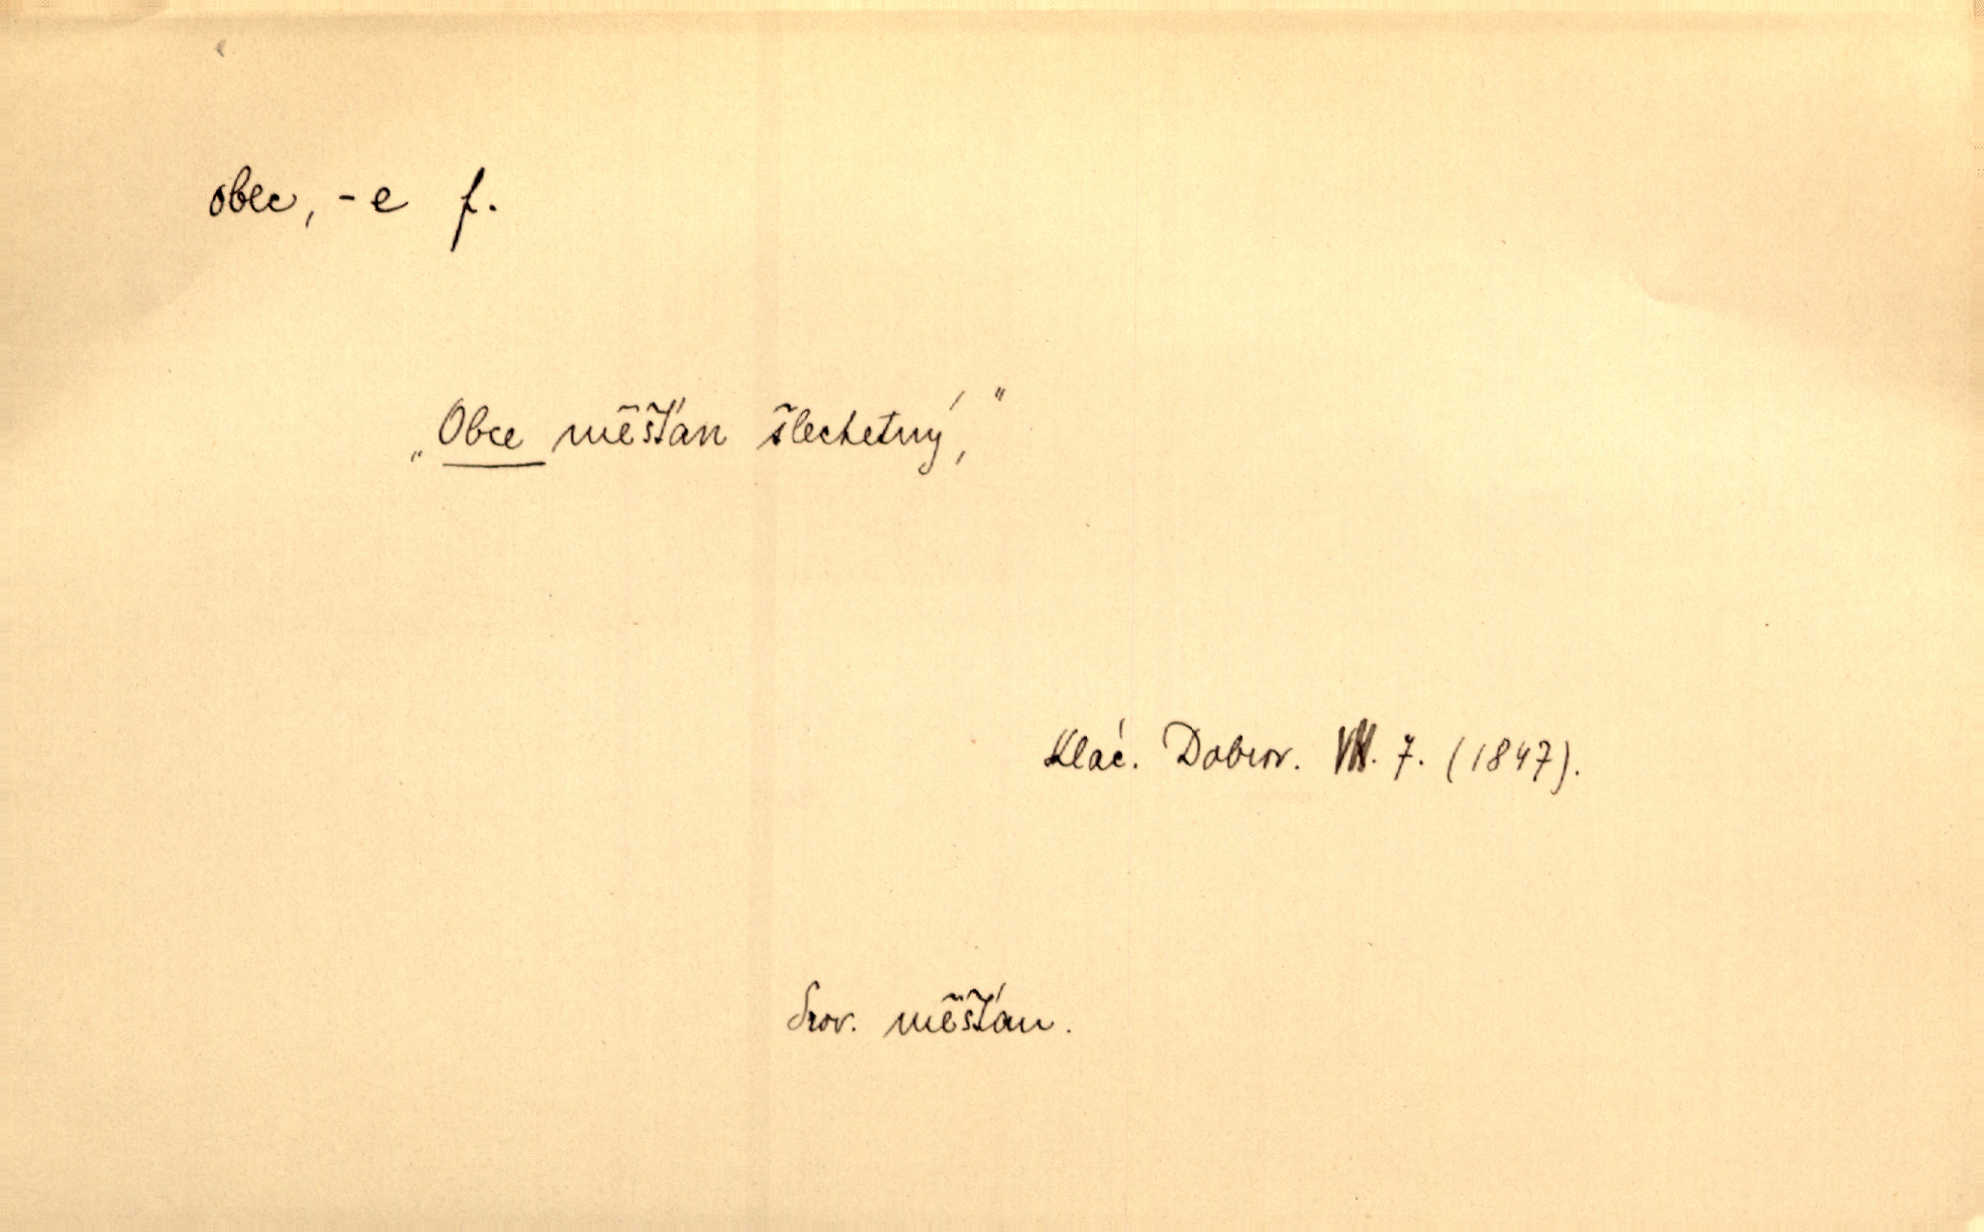 obec, -e f.
„Obce měšťan šlechetný,"
Klác. Dobrov. VII. 7. (1847).
Srov. měšťan.